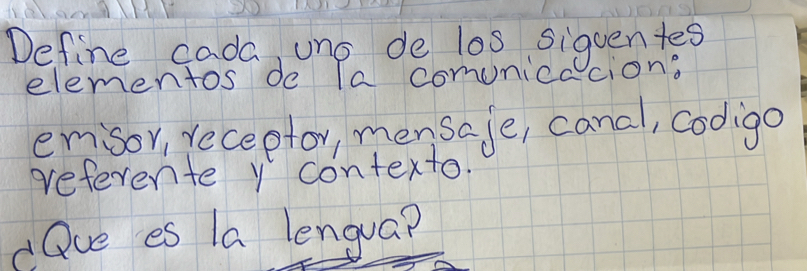 Define cada uno de los siguentes
elementos de la comunicacion:
emisor, receptor, mensaje, canal, codigo
referente y contexto.
¿Que es la lengua?